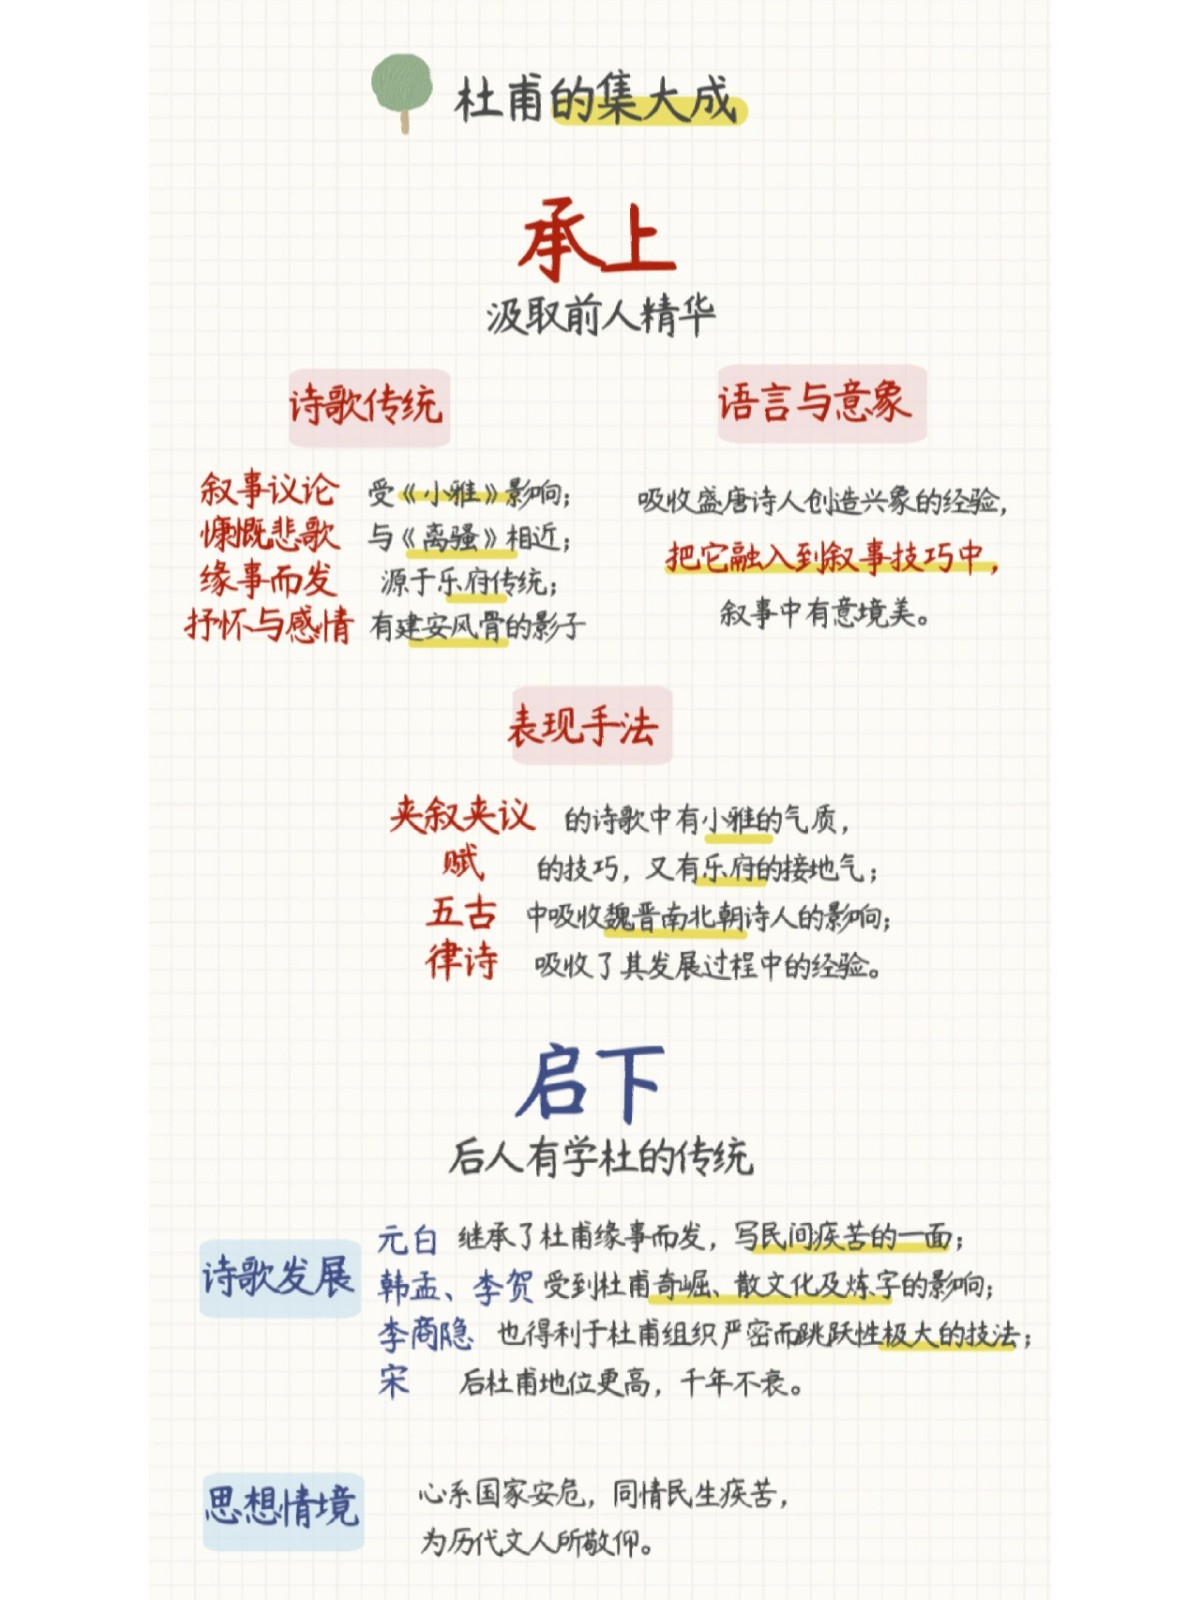 杜甫的集大成
承上
汲取前人精华
诗歌传统
叙事议论 受《小雅》影响；
慷慨悲歌 与《离骚》相近；
缘事而发 源于乐府传统；
抒怀与感情 有建安风骨的影子
语言与意象
吸收盛唐诗人创造兴象的经验，
把它融入到叙事技巧中，
叙事中有意境美。
表现手法
夹叙夹议 的诗歌中有小雅的气质，
赋 的技巧，又有乐府的接地气；
五古 中吸收魏晋南北朝诗人的影响；
律诗 吸收了其发展过程中的经验。
启下
后人有学杜的传统
诗歌发展
元白 继承了杜甫缘事而发，写民间疾苦的一面；
韩孟、李贺 受到杜甫奇崛、散文化及炼字的影响；
李商隐 也得利于杜甫组织严密而跳跃性极大的技法；
宋 后杜甫地位更高，千年不衰。
思想情境
心系国家安危，同情民生疾苦，
为历代文人所敬仰。